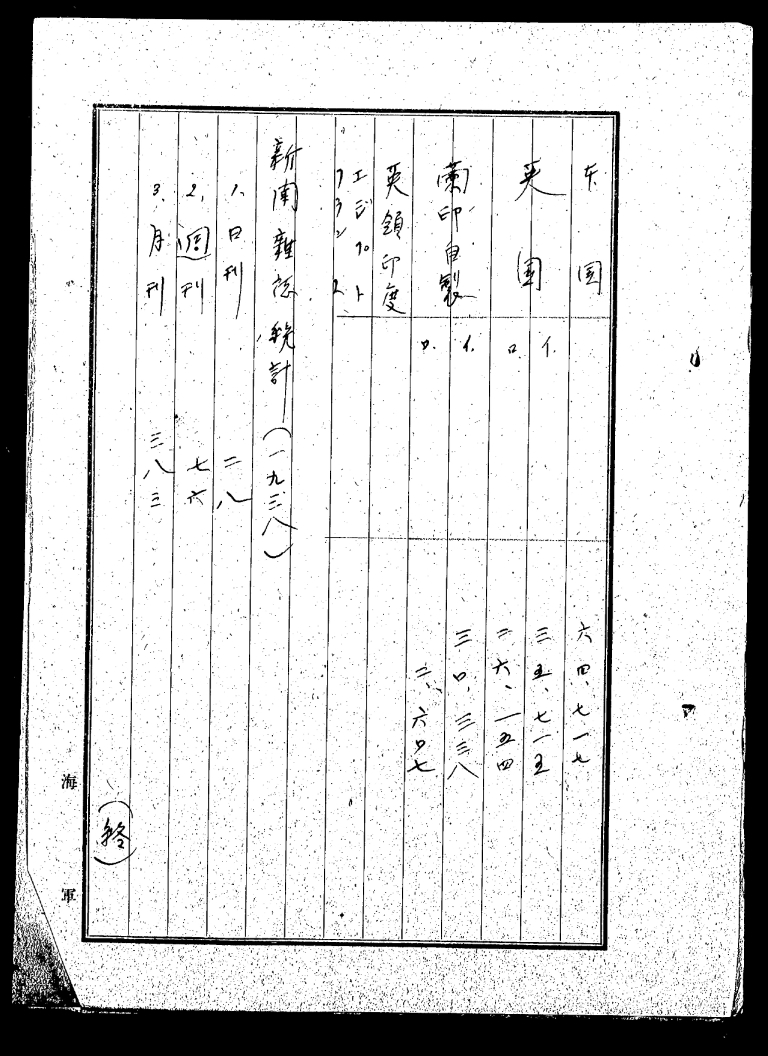 米国　六四、七一七
英国　イ.　三五、七一五
ロ.　二六、一五四
蘭印自製　イ.　三〇、三三八
ロ.　二、六〇七
英領印度
エジプト
フランス
新聞雑誌統計(一九三八)
1、日刊　二八
2、週刊　七六
3、月刊　三八三
(終)
海軍